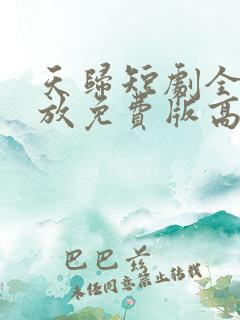 天歸短劇全
放免費版高
巴巴爷
未经同意禁止转载